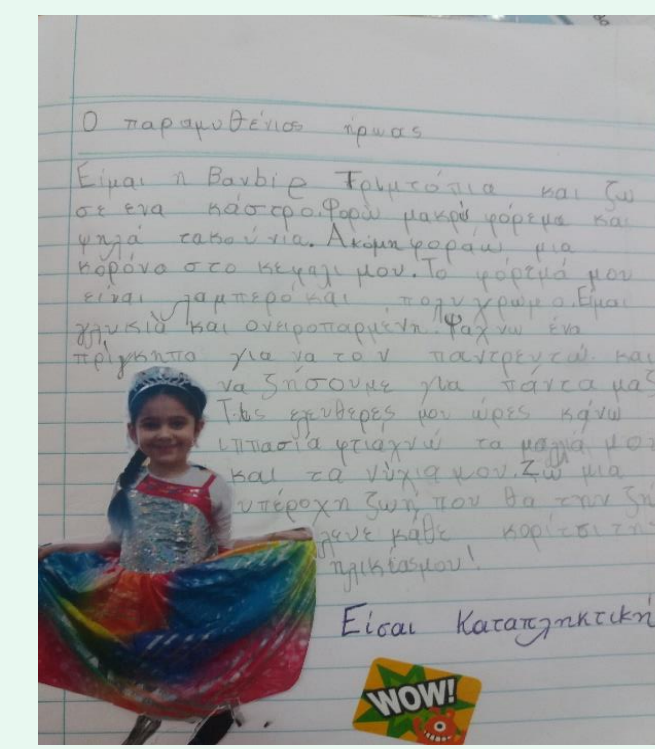 Ο παραμυθένιος ήρωας
Είμαι η Βανbie Τριμτόπια και ζω
σε ενα κάστρο. Φορώ μακρύ φόρεμα και
ψηλά τακούνια. Ακόμη φοράω μια
κορόνα στο κεφαλι μου. Το φόρεμά μου
είναι λαμπερό και πολυχρωμο. Είμαι
γλυκιά και ονειροπαρμένη. Ψάχνω ένα
πρίγκηπα για να τον παντρευτώ και
να ζήσουμε για πάντα μαζ
Τις ελευθερες μου ώρες κάνω
ιππασία φτιαχνω τα μαλιά μου
και τα νύχια μου. Ζω μια
υπέροχη ζωή που θα την ζή
λευε κάθε κορίτσι τη
ηλικίας μου!
Είσαι Καταπληκτική
WOW!